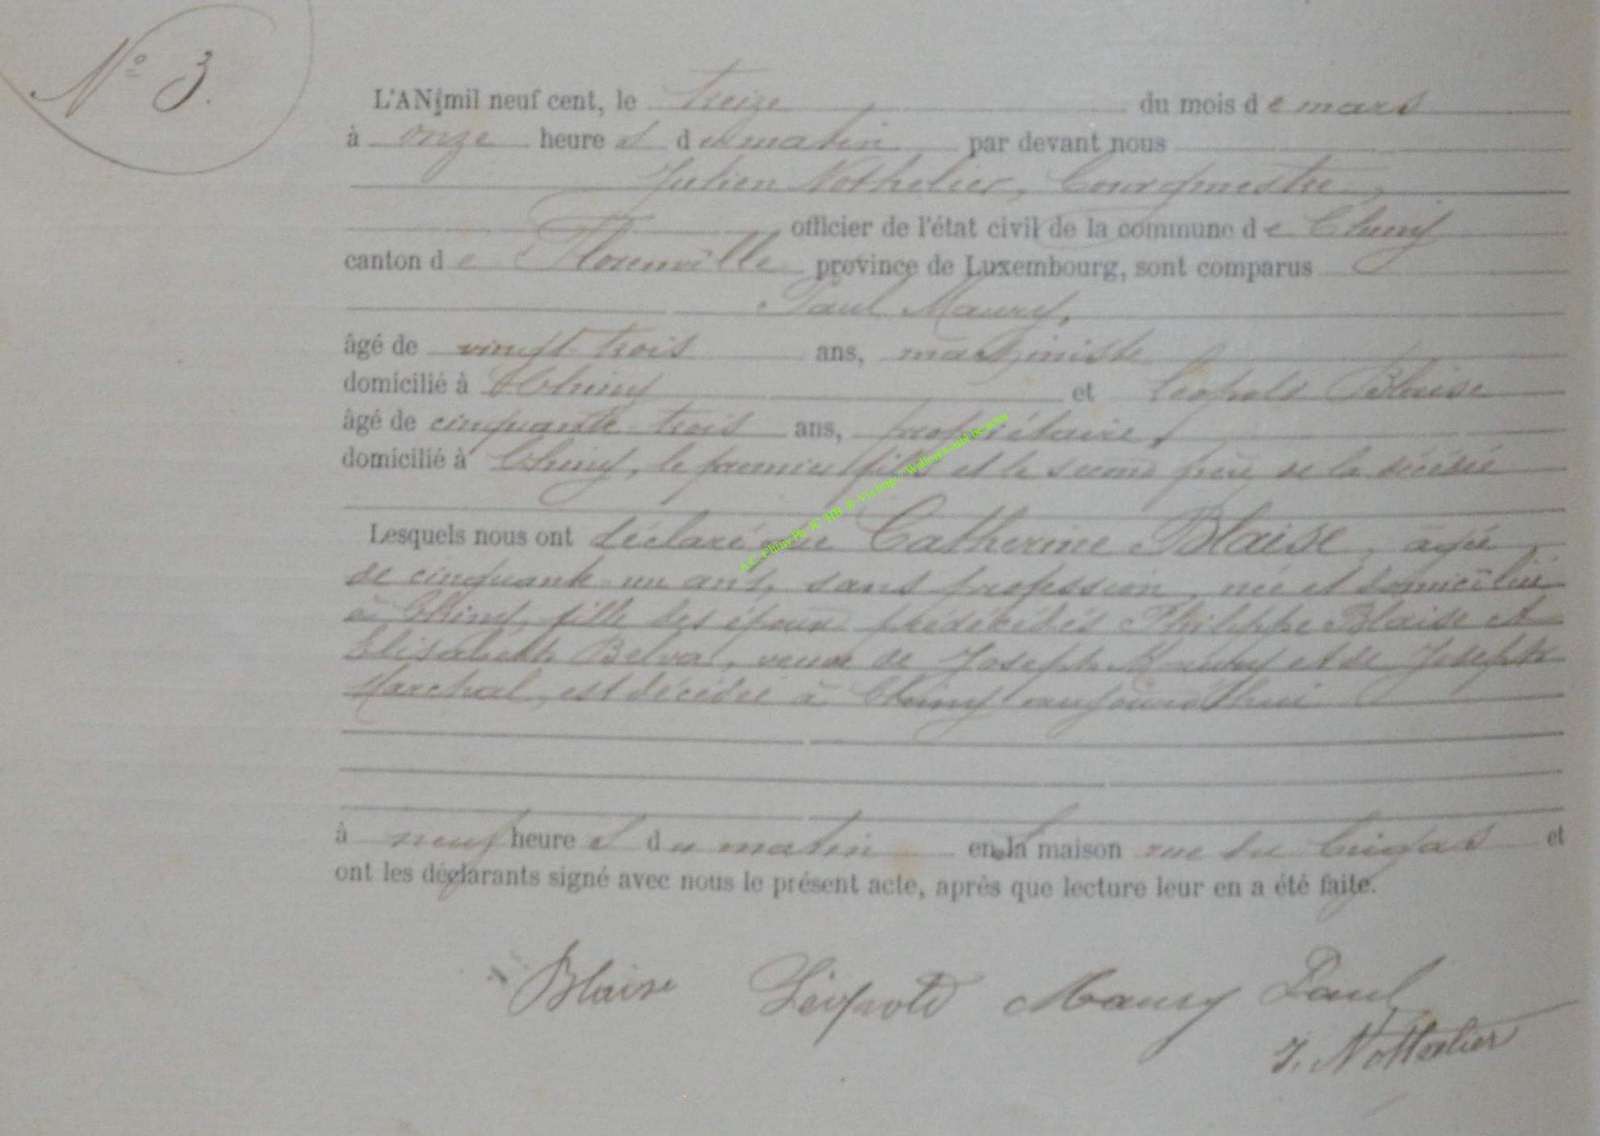 N° 3.
L'AN mil neuf cent, le treize du mois de mars
à onze heures du matin par devant nous
Julien Nothelier, bourgmestre,
officier de l'état civil de la commune de Chiny
canton de Florenville province de Luxembourg, sont comparus
Paul Maury,
âgé de vingt trois ans, machiniste
domicilié à Chiny et Léopold Blaise
âgé de cinquante trois ans, propriétaire,
domicilié à Chiny, le premier fils et le second frère de la décédée
Lesquels nous ont déclaré que Catherine Blaise, agée
de cinquante un ans, sans profession, née et domiciliée
à Chiny, fille des époux prédécédés Philippe Blaise et
Elisabeth Belva, veuve de Joseph Maury et de Joseph
Marchal, est décédée à Chiny aujourd'hui
à neuf heures du matin en la maison rue du et
ont les déclarants signé avec nous le présent acte, après que lecture leur en a été faite.
Blaise Léopold Maury Paul
J. Nothelier